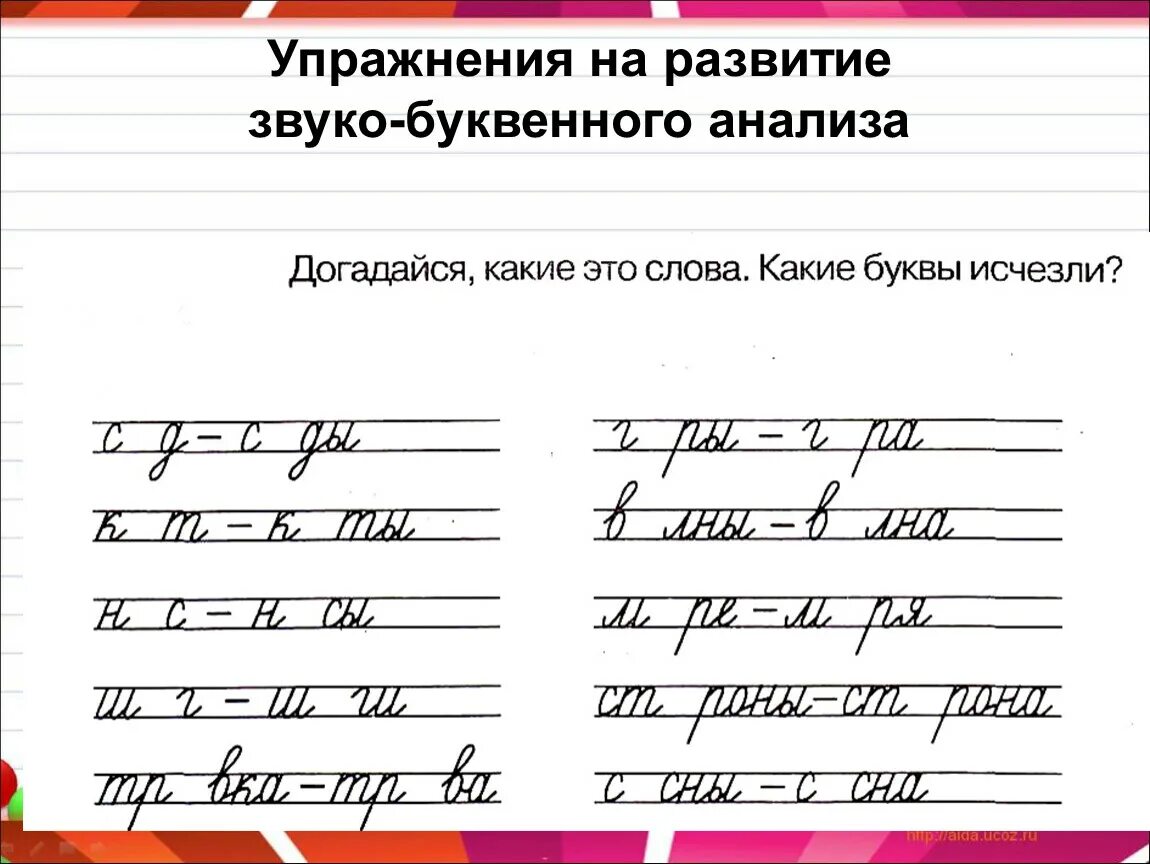 Упражнения на развитие
звуко-буквенного анализа
Догадайся, какие это слова. Какие буквы исчезли?
с д – с ды
к т – к ты
н с – н сы
ш г – ш ги
тр вка – тр ва
г ры – г ра
в лны – в лна
м ре – м ря
ст роны – ст рона
с сны – с сна
http://aida.ucoz.ru